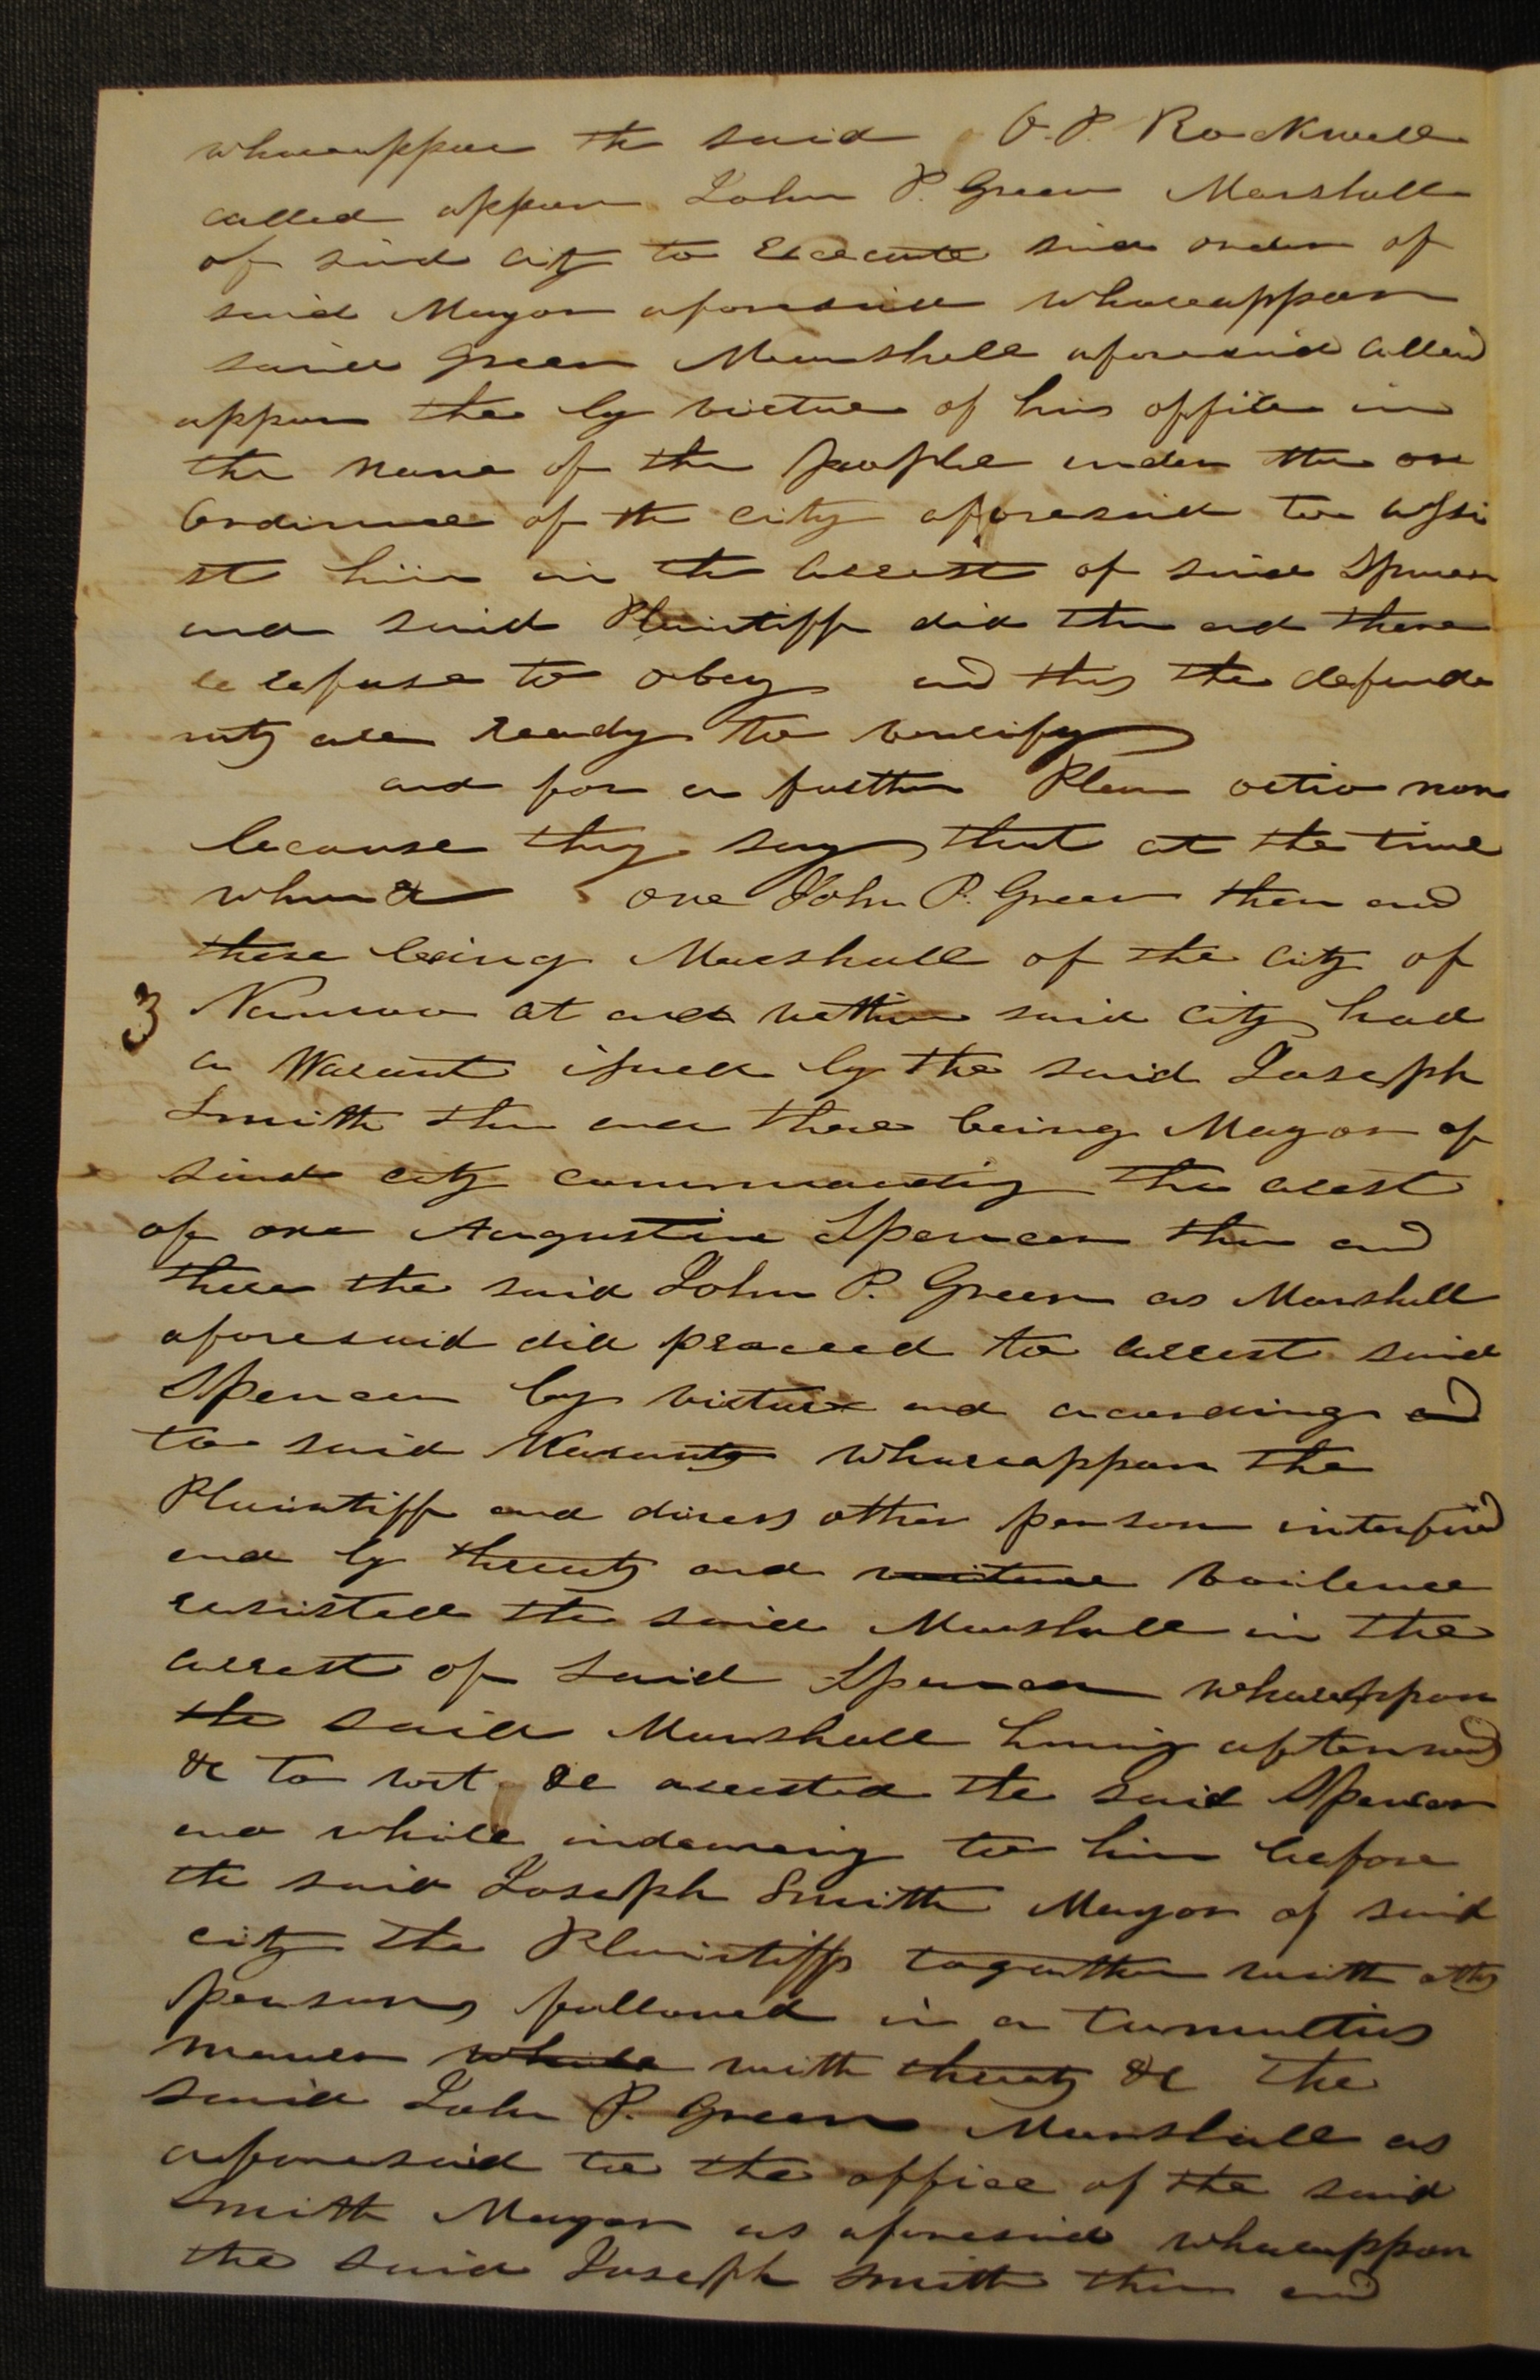 whareuppon the said O. P. Rockwell
called uppon John P. Green Marshall
of said city to Execute said order of
said Mayor aforesaid whareuppon
said Green Marshall aforesaid called
uppon the by virtue of his office in
the name of the people under the or
Ordinnce of the city aforesaid to assi
st him in the arrest of said Spencer
and said Plaintiff did then and there
re refuse to obey and this the defenda
nts are ready to verrify
and for a further Plea actio non
because they say that at the time
when & one John P. Green then and
there being Marshall of the city of
3 Nauvoo at and within said city had
a Warant isued by the said Joseph
Smith then and there being Mayor of
said city commanding the arest
of one Augustine Spencer then and
there the said John P. Green as Marshall
aforesaid did proceed to arrest said
Spencer by virtue and acaording and
to said Warants whareuppon the
Plaintiff and divers other person interfired
and by threats and voilence
resisted the said Marshall in the
arrest of said Spencer whareuppon
the said Marshall having afterward
&c to wit &c arrested the said Spencer
and while to him before
the said Joseph Smith Mayor of said
city the Plaintiff togeather with othr
persons followed in a tumultius
maner while with threats &c the
said John P. Green Marshall as
aforesaid to the office of the said
Smith Mayor as aforesaid whareuppon
the said Joseph Smith then and